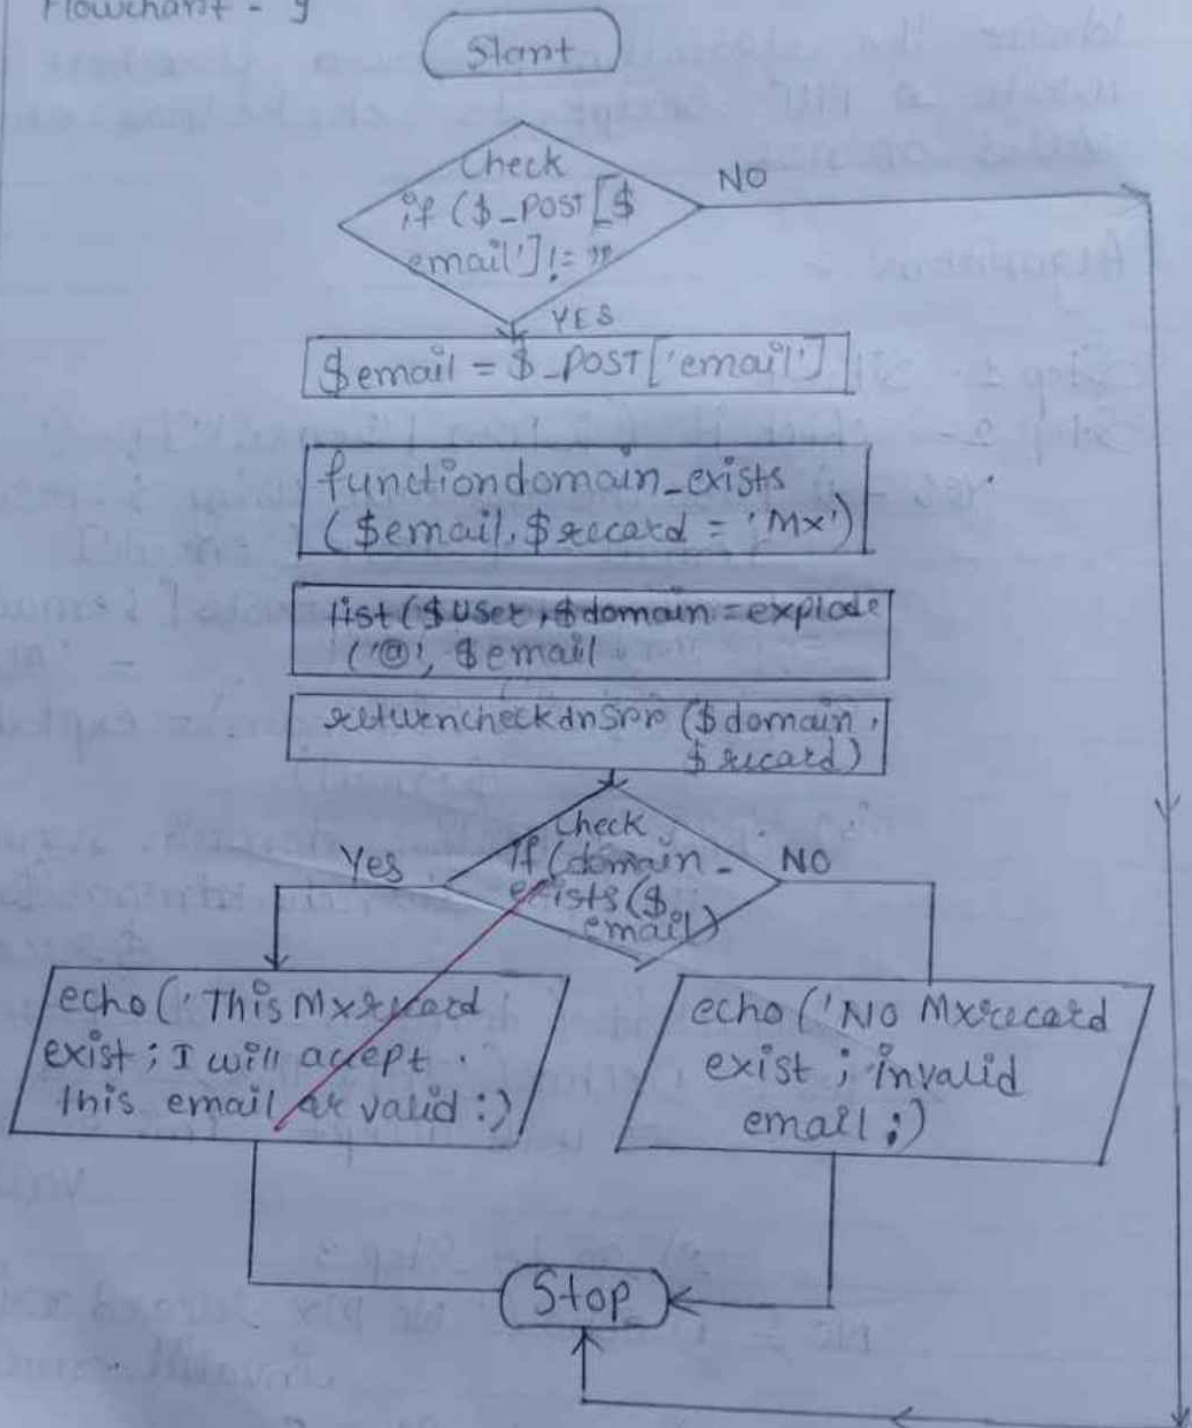 Flowchart - 9
Start
Check
if ($_POST[$
email']!= "
NO
YES
$email = $_POST['email']
functiondomain_exists
($email, $record = 'Mx')
list($user, $domain=explode
('@', $email
returncheckdnsrr ($domain,
$record)
Check
If (domain-
exists($
email)
Yes
NO
echo('This Mxrecord
exist; I will accept.
this email as valid:)
echo('NO Mxrecord
exist; invalid
email;)
Stop